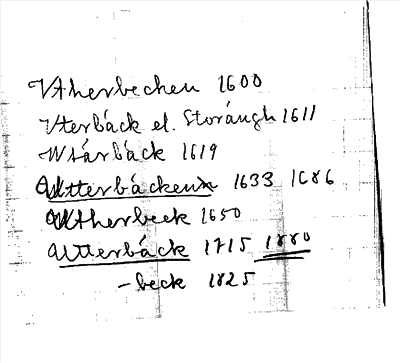 Vtherbecken 1600
Vterbäck el. Storängh 1611
Wtärbäck 1619
Utterbäcken 1633 1686
Utherbeck 1650
Utterbäck 1715 1880
-beck 1825